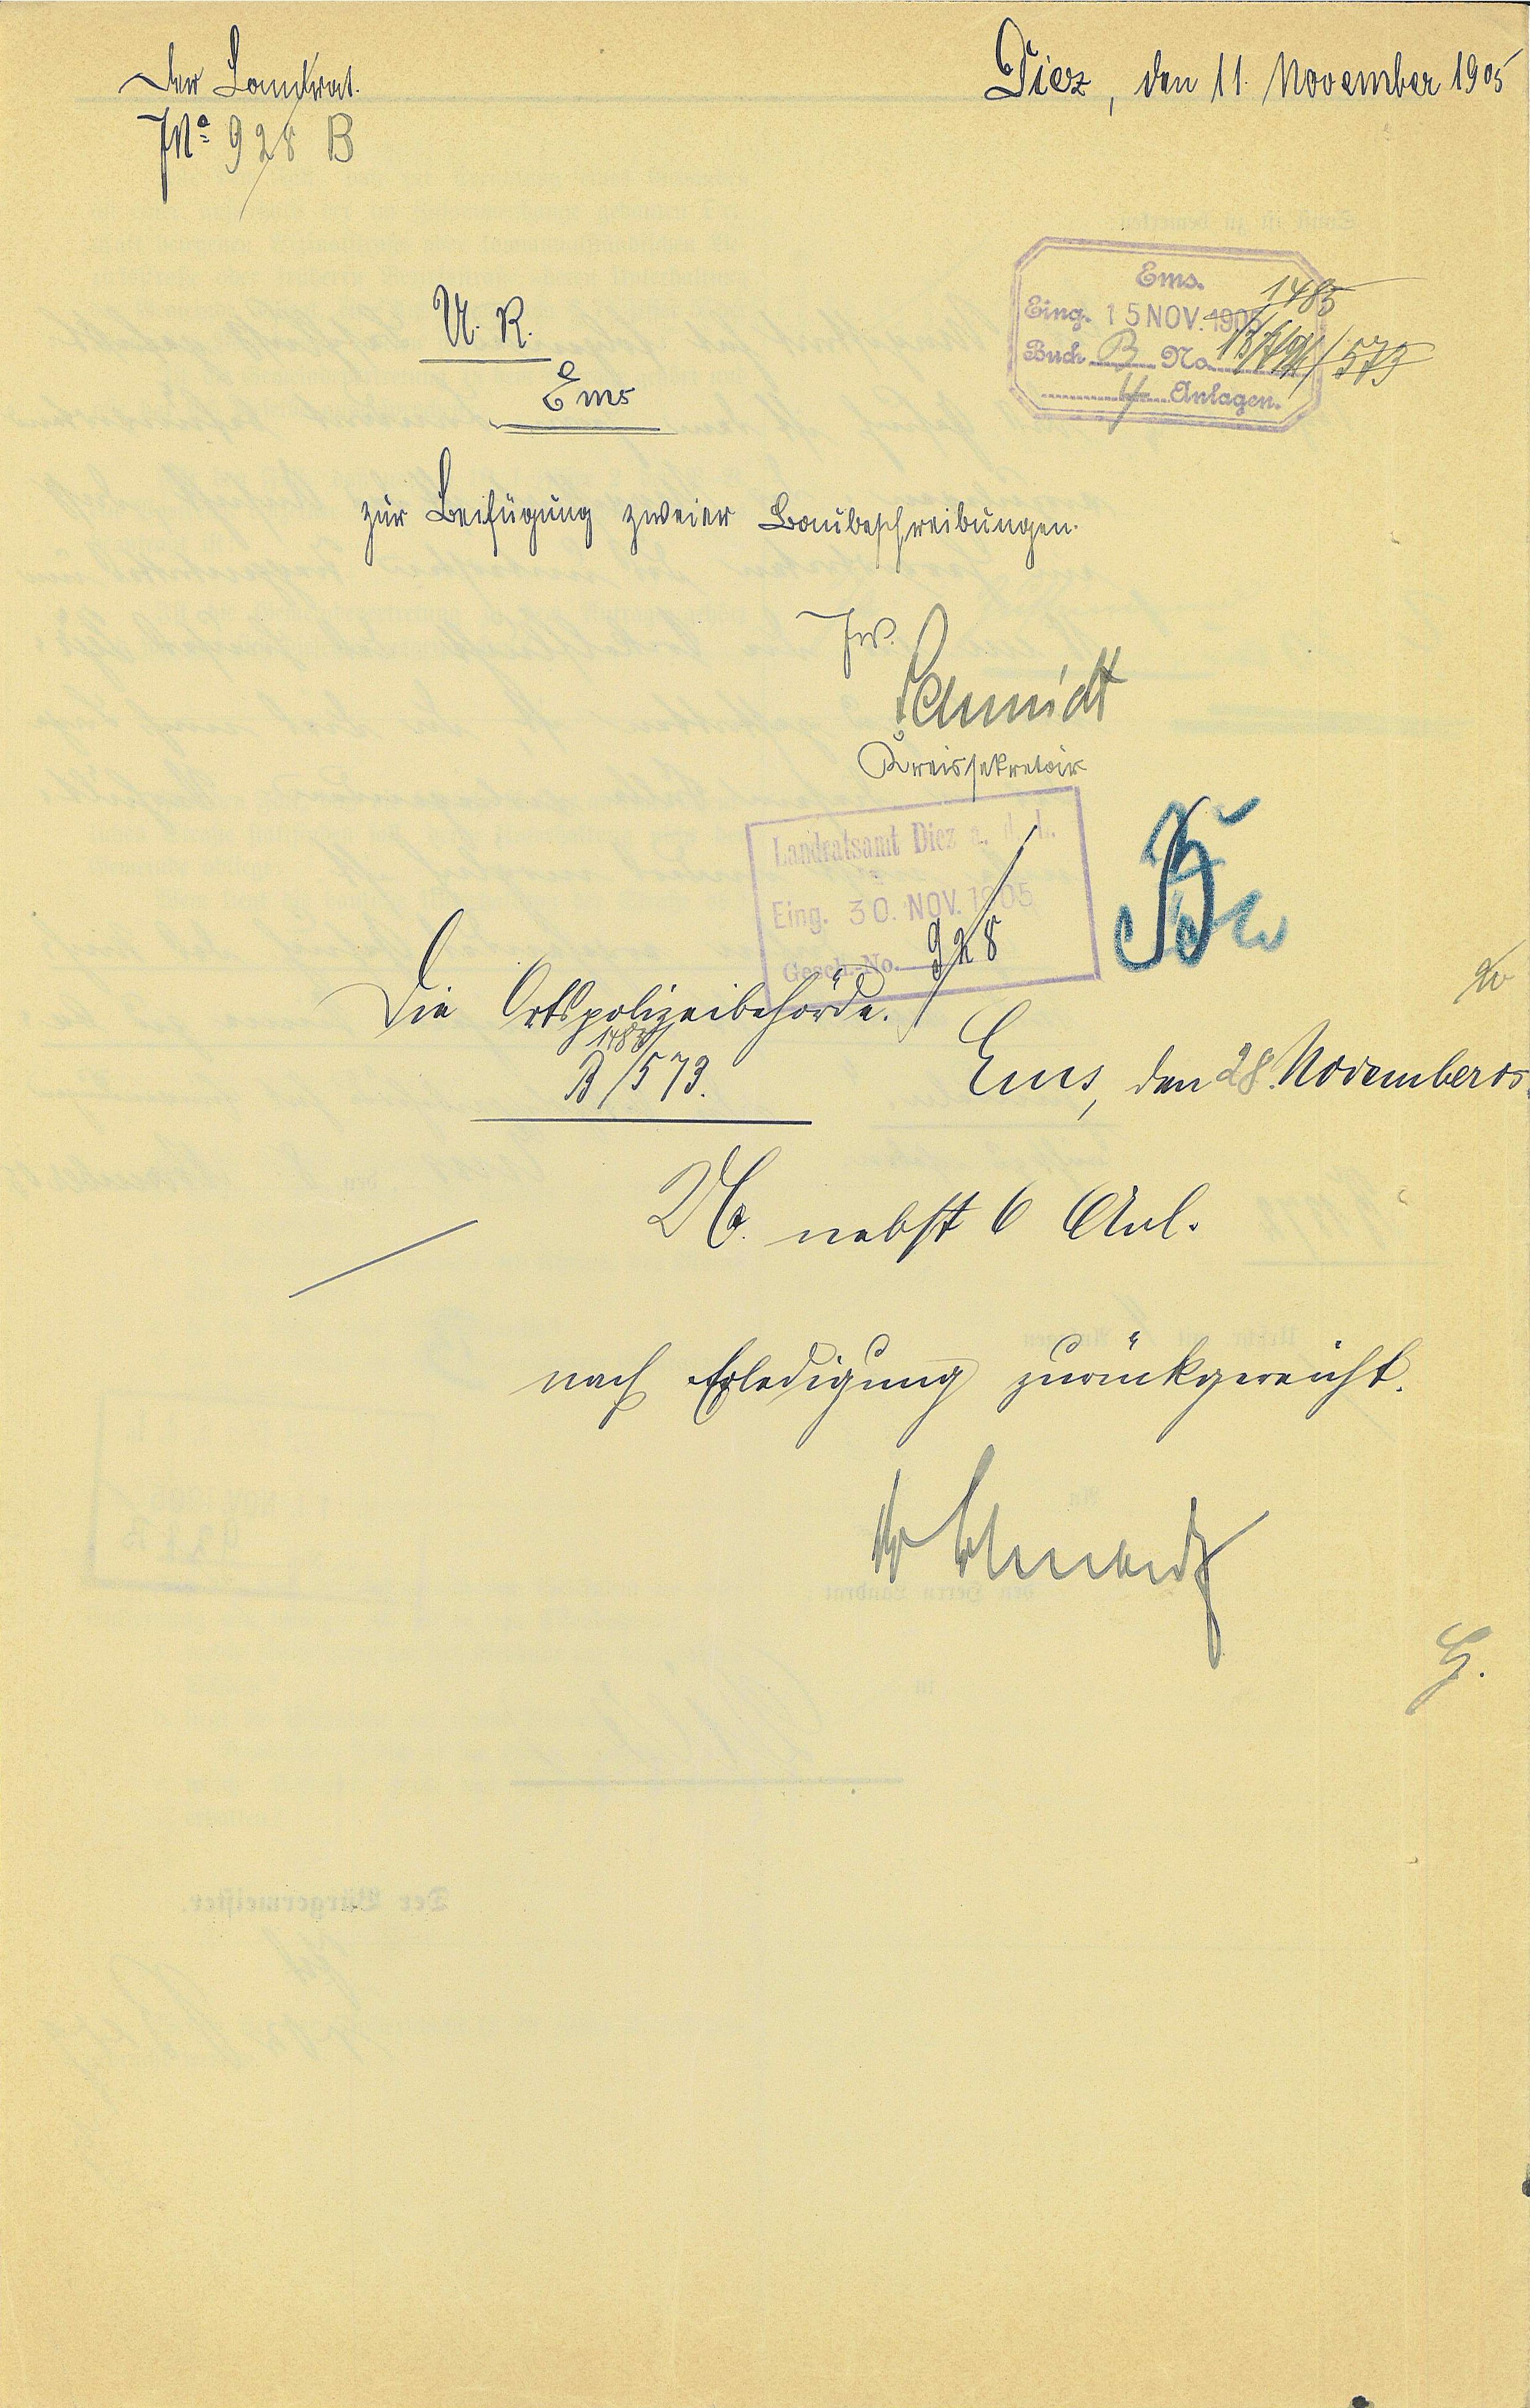 Der Landrat.
Diez, den 11. November 1905
JNº 928 B
Ems.
Eing. 15 NOV. 1905
1485
Buch B No. / 573
4 Anlagen.
U. R.
Ems
zur Beifügung zweier Baubeschreibungen.
Schmidt
Kreissekretär
Landratsamt Diez a. d. L.
Eing. 30. NOV. 1905
Gesch.-No. 928
Die Ortspolizeibehörde.
B/573.
Ems, den 28. November 05.
nebst 6 Anl.
nach Erledigung zurückgereicht.
G.